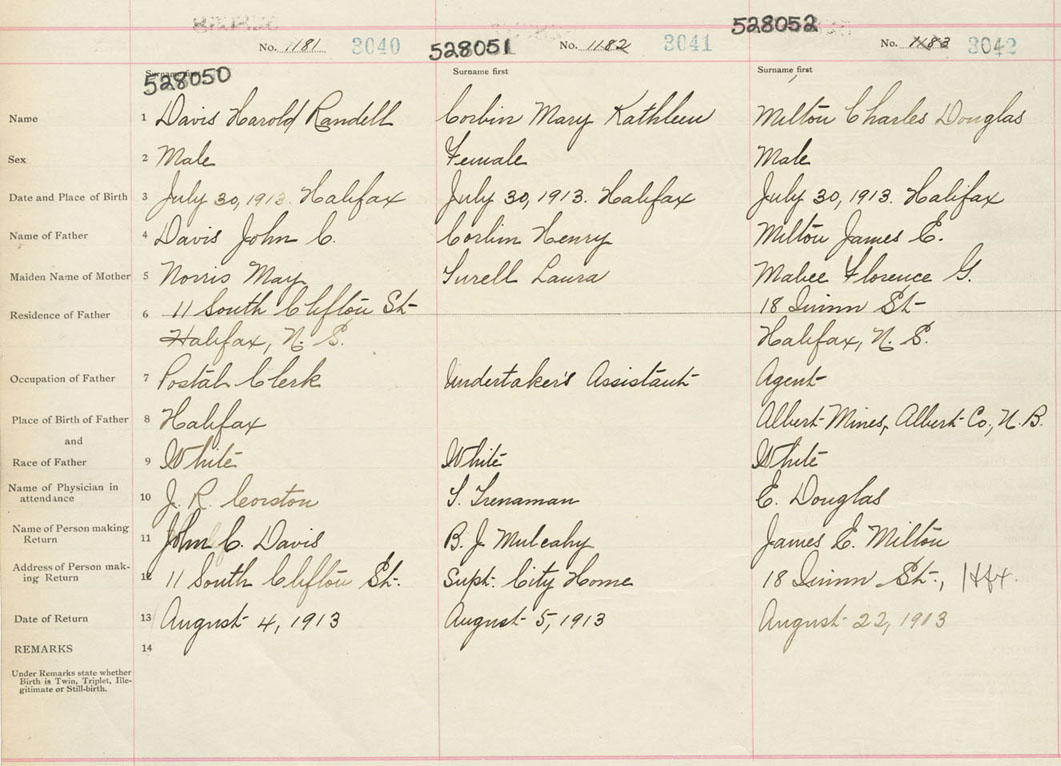 528052
528051
No. 1181 3040
No. 1182 3041
No. 1183 3042
528050
Surname first
Surname first
Surname first
Name 1 Davis Harold Randell Corbin Mary Kathleen Milton Charles Douglas
Sex 2 Male Female Male
Date and Place of Birth 3 July 30, 1913. Halifax July 30, 1913. Halifax July 30, 1913. Halifax
Name of Father 4 Davis John C. Corbin Henry Milton James E.
Maiden Name of Mother 5 Norris May Laura Mabee Florence G.
Residence of Father 6 11 South Clifton St 18 St
Halifax, N. S. Halifax, N. S.
Occupation of Father 7 Postal Clerk Undertaker's Assistant Agent
Place of Birth of Father 8 Halifax Albert Mines, Albert Co., N. B.
and
Race of Father 9 White White White
Name of Physician in
attendance 10 J. R. Corston Trenaman E. Douglas
Name of Person making
Return 11 John C. Davis B. J. Mulcahy James E. Milton
Address of Person mak-
ing Return 12 11 South Clifton St. Supt. City Home 18 St., Hfx.
Date of Return 13 August 4, 1913 August 5, 1913 August 22, 1913
REMARKS 14
Under Remarks state whether
Birth is Twin, Triplet, Ille-
gitimate or Still-birth.